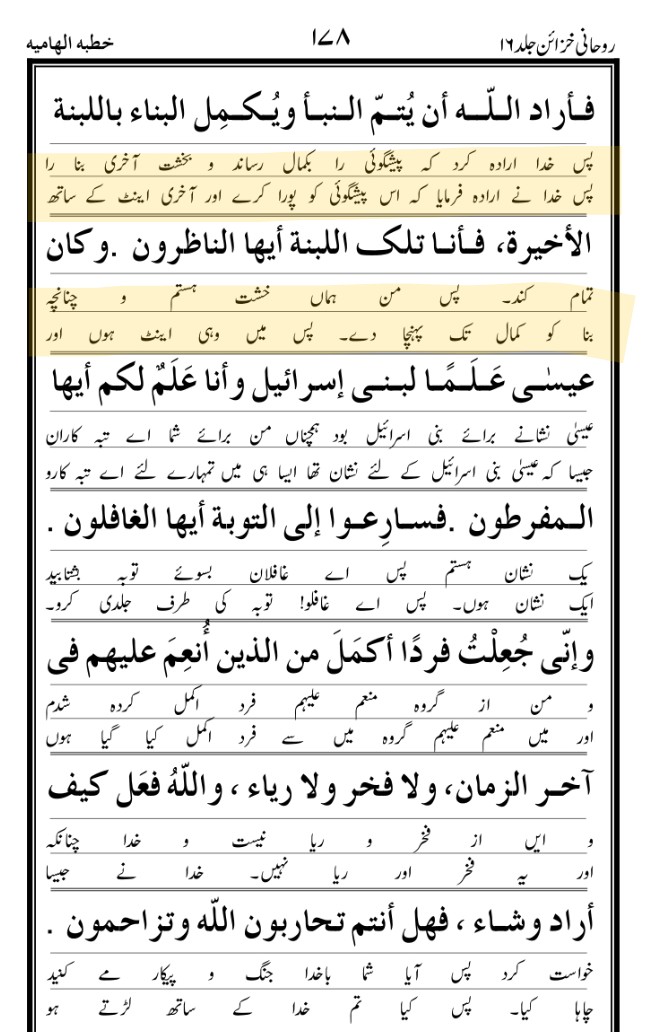 روحانی خزائن جلد ۱۶
۱۷۸
خطبه الهامیه
فأراد اللّٰه أن يُتمّ النبأ ويُكمِل البناء باللبنة
پس خدا ارادہ کرد کہ پیشگوئی را بکمال رساند و بخشت آخری بنا را
پس خدا نے ارادہ فرمایا کہ اس پیشگوئی کو پورا کرے اور آخری اینٹ کے ساتھ
الأخيرة، فأنا تلک اللبنة أيها الناظرون .وكان
تمام کند۔ پس من ہماں خشت ہستم و چنانچہ
بنا کو کمال تک پہنچا دے۔ پس میں وہی اینٹ ہوں اور
عيسٰى عَلَمًا لبنى إسرائيل وأنا عَلَمٌ لكم أيها
عیسیٰ نشانے برائے بنی اسرائیل بود ہمچناں من برائے شما اے تبہ کاران
جیسا کہ عیسیٰ بنی اسرائیل کے لئے نشان تھا ایسا ہی میں تمہارے لئے اے تبہ کارو
المفرطون .فسارِعوا إلى التوبة أيها الغافلون .
یک نشان ہستم پس اے غافلان بسوئے توبہ بشتابید
ایک نشان ہوں۔ پس اے غافلو! توبہ کی طرف جلدی کرو۔
وإنّى جُعِلْتُ فردًا أكمَلَ من الذين أُنعِمَ عليهم فى
و من از گروہ منعم علیہم فرد اکمل کردہ شدم
اور میں منعم علیہم گروہ میں سے فرد اکمل کیا گیا ہوں
آخر الزمان، ولا فخر ولا رياء ، واللّٰهُ فعَل كيف
و ایں از فخر و ریا نیست و خدا چنانکہ
اور یہ فخر اور ریا نہیں۔ خدا نے جیسا
أراد وشاء ، فهل أنتم تحاربون اللّٰه وتزاحمون .
خواست کرد پس آیا شما باخدا جنگ و پیکار مے کنید
چاہا کیا۔ پس کیا تم خدا کے ساتھ لڑتے ہو